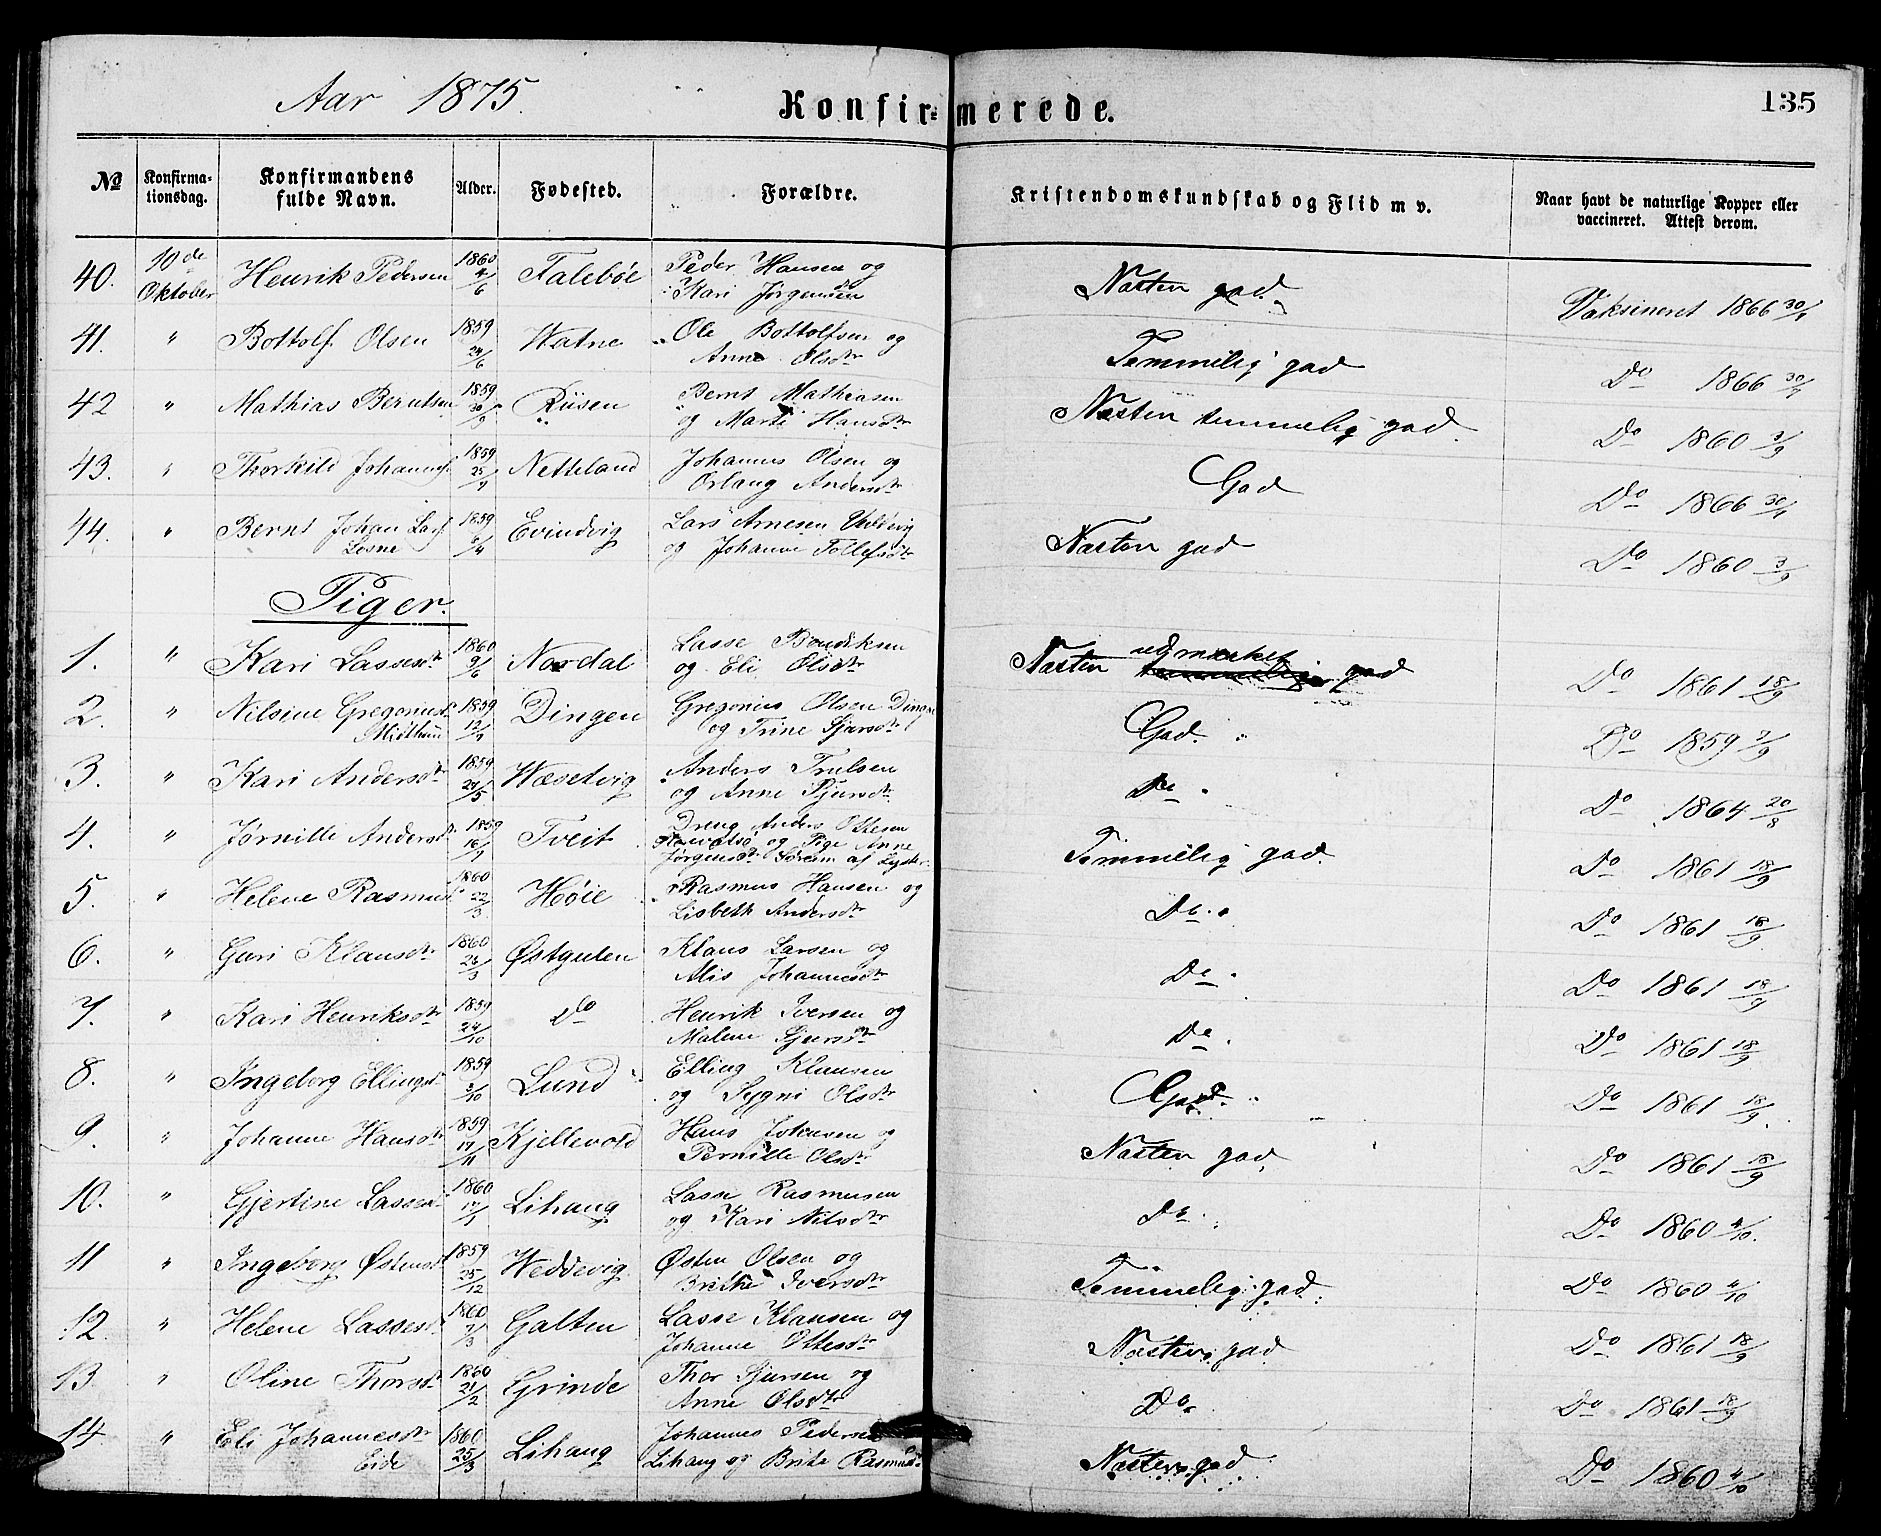 Aar 1875.
Konfirmerede.
135
No
Konfirmationsdag.
Konfirmandens fulde Navn.
Alder.
Fødested.
Forældre.
Kristendomskundskab og Flid m v.
Naar havt de naturlige Kopper eller vaccineret. Attest derom.
40. 10de Oktober Henrik Pedersen 1860 4/6 Falebøe Peder Hansen og Kari Jørgensdtr Næsten god. Vaksineret 1866 30/9
41. " Bottolf Olsen 1859 24/6 Watne Ole Bottolfsen og Anne Olsdtr Temmelig god Do 1866 30/9
42 " Mathias Berntsen 1859 30/9 Riisen Bernt Mathiasen og Marte Hansdtr Næsten temmelig god. Do 1860 3/9
43. " Thorkild Johannes. 1859 25/9 Netteland Johannes Olsen og Orlaug Andersdtr God Do 1866 30/9
44. " Bernt Johan Lars. Losne 1859 /4 Evindvig Lars Arnesen og Johanne Tollefsdtr Næsten god Do 1860 3/9
Piger.
1. " Kari Lassesdtr 1860 9/6 Nordal Lasse Bendiksen og Eli Olsdtr Næsten udmærket god Do 1861 18/9
2. " Nilsine Gregorius. Midthun 1859 12/9 Dingen Gregorius Olsen Dingen og Trine Sjursdtr God. Do 1859 2/9
3. " Kari Andersdtr 1859 24/5 Wæsetvig Anders Trulsen og Anne Sjursdtr. Do Do 1864 20/8
4. " Jørnille Andersdtr 1859 16/9 Tveit Dreng Anders Ottesen og Pige Anne Jørgensdtr Sørem af Lyster Temmelig god. Do 1861 18/9
5. " Helene Rasmusd. 1860 22/3 Høie Rasmus Hansen og Lisbeth Andersdtr Do. Do 1861 18/9
6. " Guri Klausdtr 1860 26/3 Østgulen Klaus Larsen og Alis Johannesdtr Do Do 1861 18/9
7. " Kari Henriksdtr 1859 24/10 Do Henrik Iversen og Malene Sjursdtr Do. Do 1861 18/9
8. " Ingeborg Ellingsd. 1859 3/10 Lund Elling Klausen og Sygni Olsdtr God. Do 1861 18/9.
9. " Johanne Hansdtr 1859 17/11 Kjellevold Hans Johnsen og Pernille Olsdtr Næsten god, Do 1861 18/9
10. " Gjertine Lassesd. 1860 17/1 Lihaug Lasse Rasmusen og Kari Nilsdtr Do. Do 1860 4/10.
11 " Ingeborg Østensd. 1859 25/12 Weddevig Østen Olsen og Brithe Iversdtr Temmelig god. Do 1860 4/10
12. " Helene Lassesd. 1860 7/3 Galten Lasse Klausen og Johanne Ottesdtr Næsten god Do 1861 18/9
13. " Oline Thorsdtr 1860 21/2 Grinde Thor Sjursen og Anne Olsdtr Do. Do 1861 18/9
14. " Eli Johannesdtr Eide 1860 25/3 Lihaug Johannes Pedersen Lihaug og Brite Rasmusd. Næsten god Do 1860 4/10